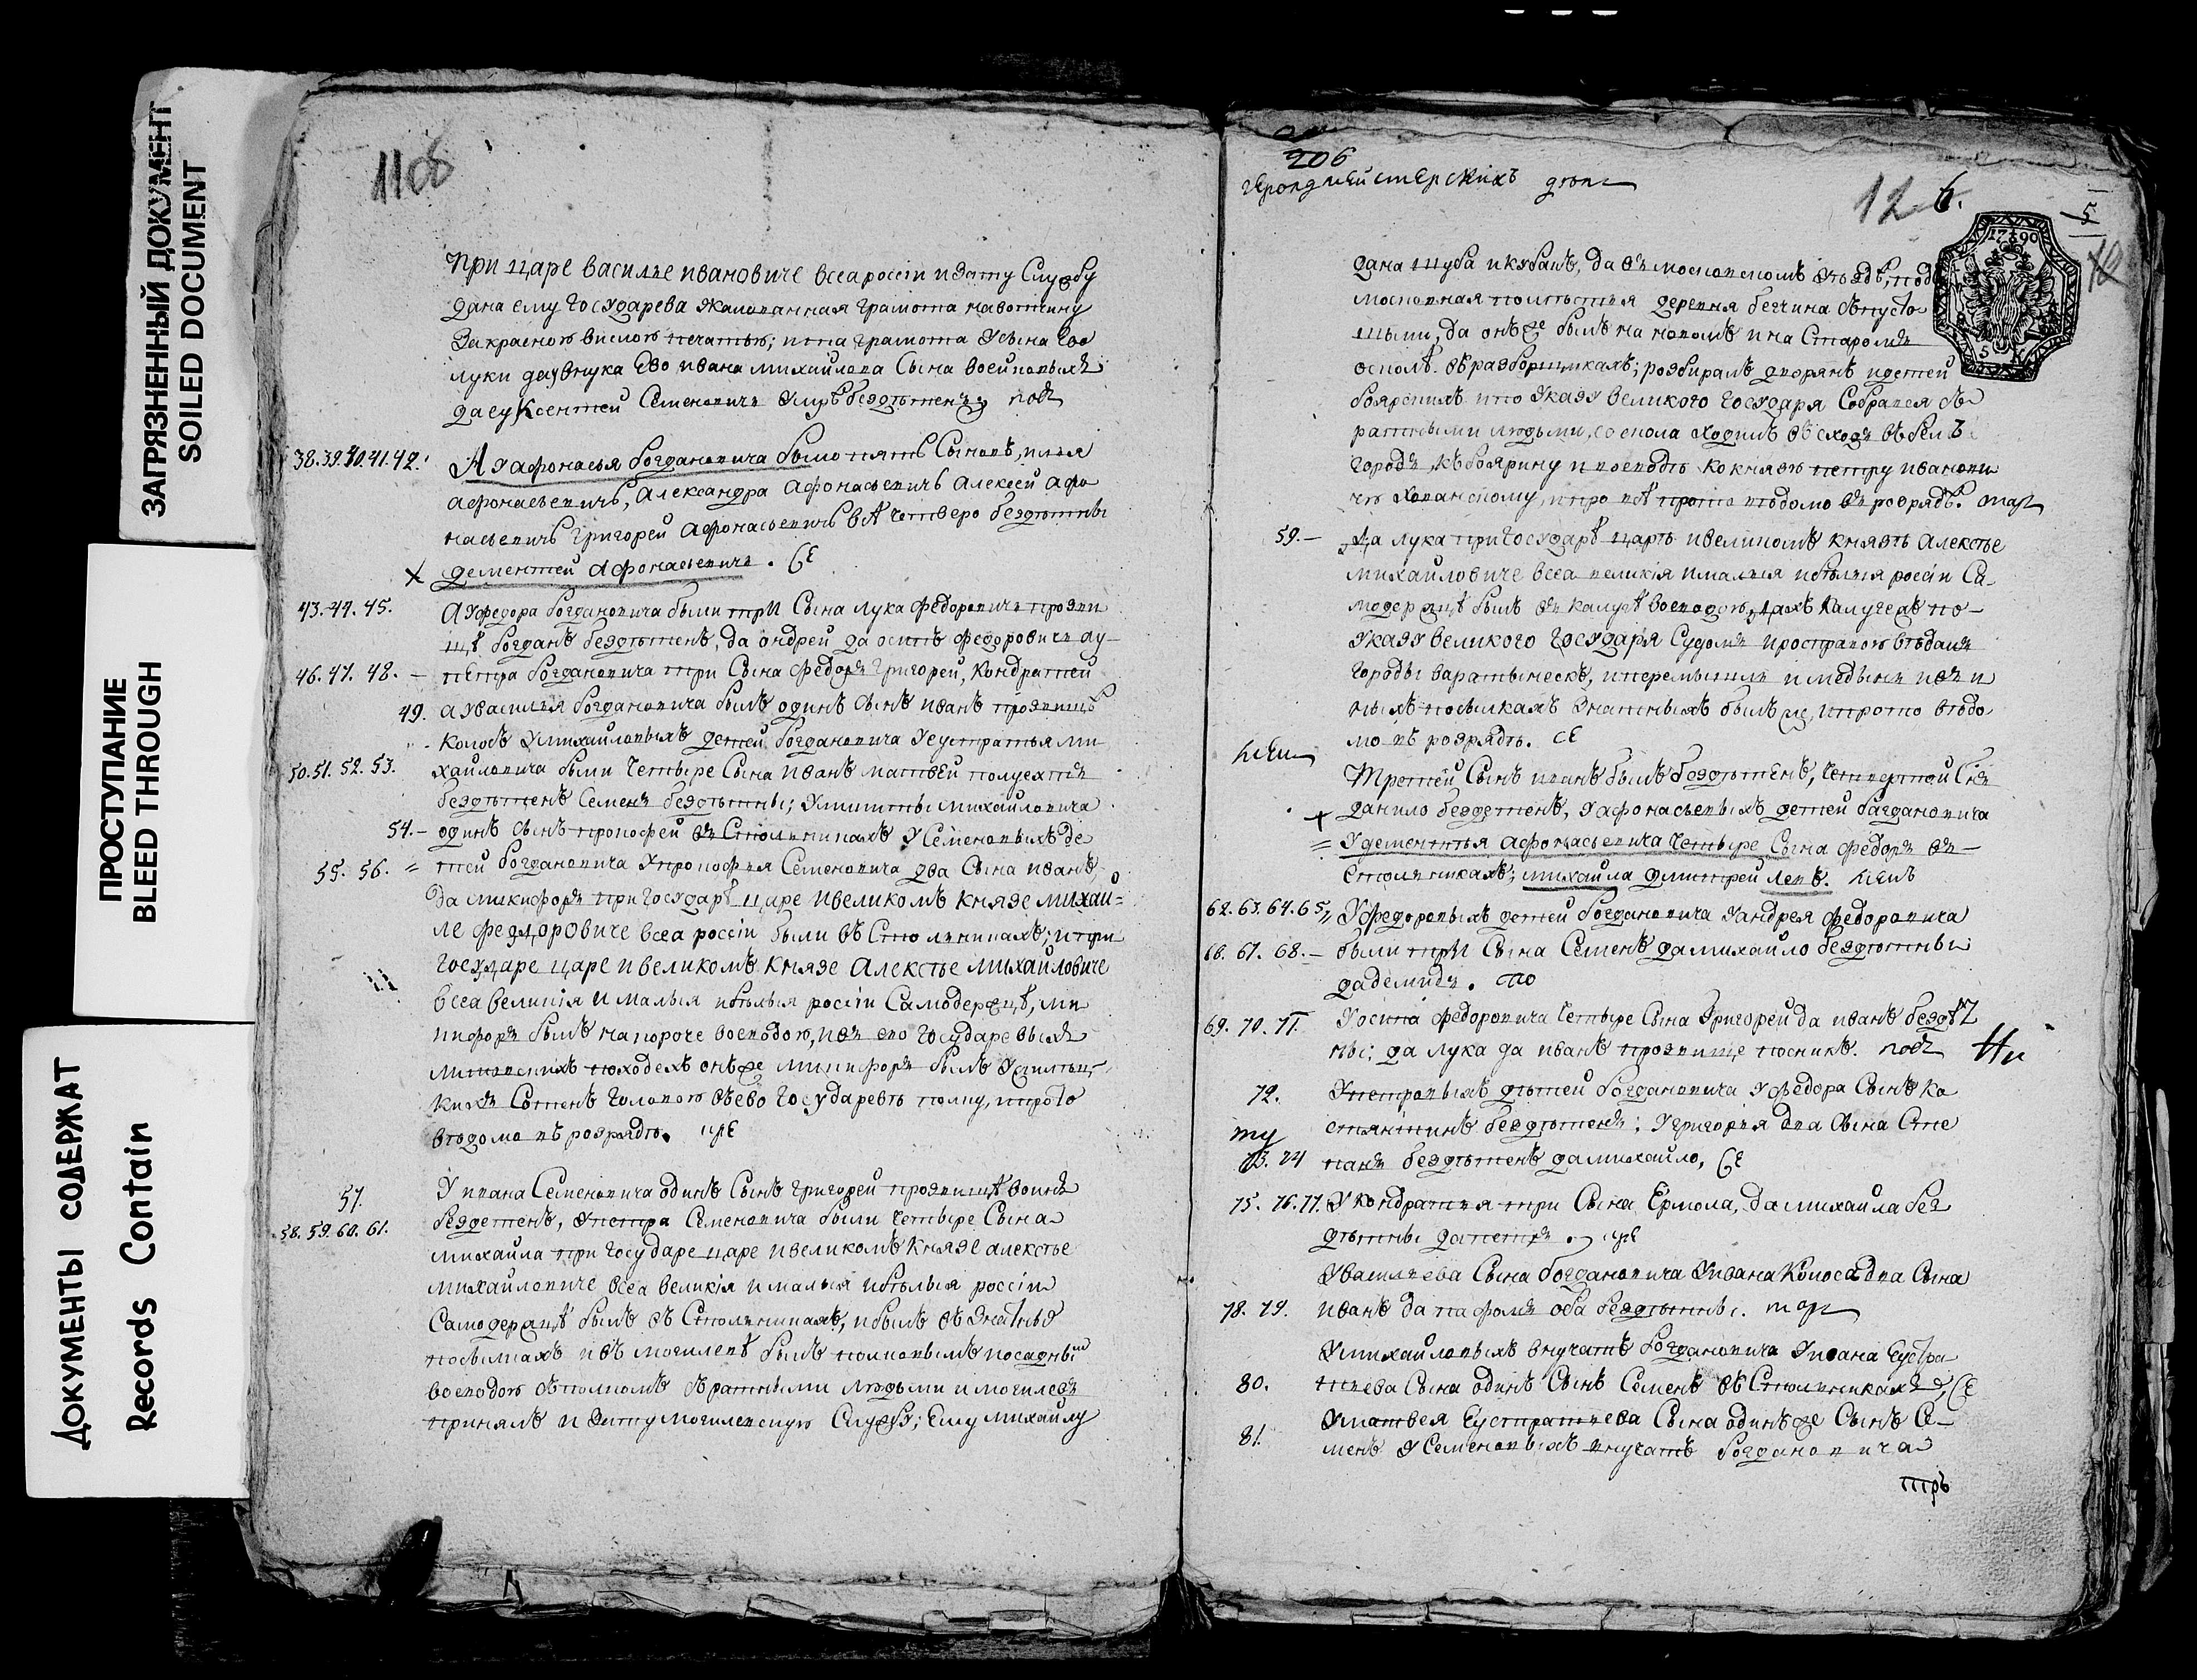 ЗАГРЯЗНЕННЫЙ ДОКУМЕНТ
SOILED DOCUMENT
ПРОСТУПАНИЕ
BLEED THROUGH
ДОКУМЕНТЫ СОДЕРЖАТ
Records Contain
11об
при царе василье ивановиче всеа россiи и зату службу
дана ему государева жалованная грамота навотчину
закрасною вислою печатью; ита грамота усына Ево
луки даувнука Ево ивана михайлова Сына воейковыхъ
даеуксентей Семеновичь умръ бездетенъ
38.39.40.41.42. А уафонасья богдановича было пять Сыновъ, илья
афонасьевичь, александра афонасьевичь алексей афо
насьевичь григорей афонасьевичь всѣ четверо бездетны
дементей афонасьевичь.
43.44.45. Ауфедора богдановича были три Сына лука федоровичь прозви
щѣ богданъ бездѣтенъ, да андрей да осипъ федоровичи ау-
46.47.48. - петра богдановича три Сына федоръ григорей, кондратей
49. аувасилья богдановича былъ одинъ Сынъ иванъ прозвищъ
колосъ умихайловыхъ детей богдановича уеустратья ми
50.51.52.53. хайловича были четыре Сына иванъ матвей полуехтъ
бездѣтенъ Семенъ бездѣтны; уникиты михайловича
54.- одинъ сынъ прокофей въ Столникахъ уСеменовыхъ де
55. 56. = тей богдановича упрокофья Семеновича два Сына иванъ,
да никифоръ пригосударѣ царе ивеликомъ князе михаи=
ле федоровиче всеа россiи были въ Столникахъ; ипри
государе царе ивеликомъ князе Алексѣе михайловиче
всеа великiя и малыя ибѣлыя россiи Самодержцѣ, ни
кифоръ былъ на короче воеводою, ивъ его государевыхъ
походехъ онъже никифоръ былъ
Сотенъ головою въево государевѣ полку, ипрото
вѣдомо въ розрядѣ.
57. У ивана Семеновича одинъ Сынъ григорей прозвищѣ воинъ
58.59.60.61. бездетенъ, упетра Семеновича были четыре Сына
михайла при государе царе ивеликомъ князе алексѣе
михайловиче всеа великiя ималыя ибѣлыя россiи
Самодержцѣ былъ въ Столникахъ, ибылъ въ знатныхъ
посылкахъ ивъ могилевѣ былъ полковымъ иосадным
воеводою съполкомъ сратными людьми и могилевъ
принялъ и зату могилевскую Службу; Ему михайлу
206
герольдмейстерскихъ делъ
12 6.
5
10
1790
дана шуба икубокъ, да въ московскомъ уѣздѣ, под
московная поместья деревня бесчина съпусто
шьми, да онъже былъ на новомъ и на Старомъ
осколѣ въразборщикахъ; розбиралъ дворянъ идетей
боярскихъ ипо указу великого государя Собрався съ
ратными людьми, соскола ходилъ въсходъ въбел
городъ, къбоярину и воеводѣ ко князю петру иванови
чю хованскому, ипро всѣ прото вѣдомо въ розрядѣ.
59.- Да лука пригосударѣ царѣ ивеликомъ князѣ алексѣе
михайловиче всеа великiя ималыя ибѣлыя россiи Са-
модержцѣ былъ въ калугѣ воеводою, дакъ калугеже по-
указу великого государя Судомъ ирасправою вѣдалъ
городы варатынескъ, иперемышль имедынь ивъ и
ныхъ посылкахъ знатныхъ былъже, ипрото вѣдо
мо въ розрядѣ.
Третей Сынъ иванъ былъ бездѣтенъ, четвертой Снъ
данило бездетенъ, уафонасьевыхъ детей богдановича
удементья афонасьевича четыре Сына федоръ въ-
столникахъ; михайла дмитрей левъ.
62.63.64.65, Уфедоровыхъ детей богдановича уандрея федоровича
66. 67. 68.- были три Сына Семенъ да михайло бездѣтны
да демидъ.
69. 70. 71. Уосипа федоровича четыре Сына григорей да иванъ бездѣт
ны; да лука да иванъ прозвище посникъ.
72. Упетровыхъ дѣтей богдановича уфедора Сынъ ко
стянтинъ бездѣтенъ; угригорья два Сына Сте
73. 74 панъ бездѣтенъ дамихайло,
75. 76.77. У кондратья три Сына Ермола, да михайла без
дѣтны да петръ.
Увасильева Сына богдановича уивана колоса два Сына
78. 79. иванъ да пафомъ оба бездѣтны.
Умихайловыхъ внучатъ богдановича уивана Еустра
80. тьева Сына одинъ Сынъ Семенъ въ Столникахъ,
Уматвея Еустратьева Сына одинъже Сынъ Се-
81. менъ уСеменовыхъ внучатъ богдановича